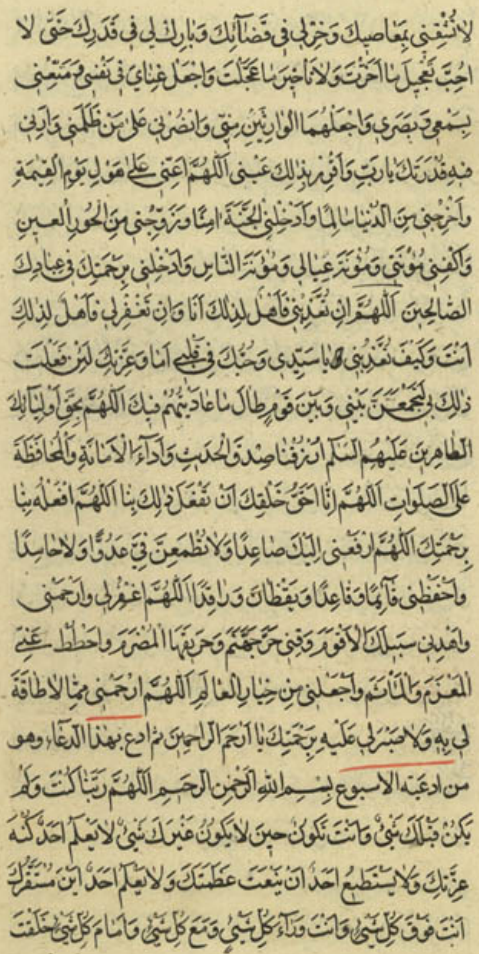 لا تشقني بمعاصيك وخر لي في قضآئك وبارك لي في قدرك حتى لا
احب تعجيل ما اخرت ولا تاخير ما عجلت واجعل غناي في نفسي ومتعني
بسمعي وبصري واجعلهما الوارثين مني وانصرني على من ظلمني وارني
فيه قدرتك يا رب واقرر بذلك عيني اللهم اعني على هول يوم القيمة
واخرجني من الدنيا سالما وادخلني الجنة امنا وزوجني من الحور العين
واكفني مؤنتي ومؤنة عيالي ومؤنة الناس وادخلني برحمتك في عبادك
الصالحين اللهم ان تعذبني فاهل لذلك انا وان تغفر لي فاهل لذلك
انت وكيف تعذبني يا سيدي وحبك في قلبي اما وعزتك لئن فعلت
ذلك بي لتجمعن بيني وبين قوم طال ما عاديتهم فيك اللهم بحق اوليآئك
الطاهرين عليهم السلم ارزقنا صدق الحديث وادآء الامانة والمحافظة
على الصلوات اللهم انا احق خلقك ان تفعل ذلك بنا اللهم افعله بنا
برحمتك اللهم ارفعني اليك صاعدا ولا تطمعن في عدوا ولا حاسدا
واحفظني قآئما وقاعدا ويقظان وراقدا اللهم اغفر لي وارحمني
واهدني سبيلك الاقوم وقني حر جهنم وحريقها المضرم واحطط عني
المغرم والماثم واجعلني من خيار العالم اللهم ارحمني مما لا طاقة
لي به ولا صبر لي عليه برحمتك يا ارحم الراحمين ثم ادع بهذا الدعآء وهو
من ادعية الاسبوع بسم الله الرحمن الرحيم اللهم ربنا كنت ولم
يكن قبلك شئ وانت تكون حين لا يكون غيرك شئ لا يعلم احد كنه
عزتك ولا يستطيع احد ان ينعت عظمتك ولا يعلم احد اين مستقرك
انت فوق كل شئ وانت ورآء كل شئ ومع كل شئ وامام كل شئ خلقت